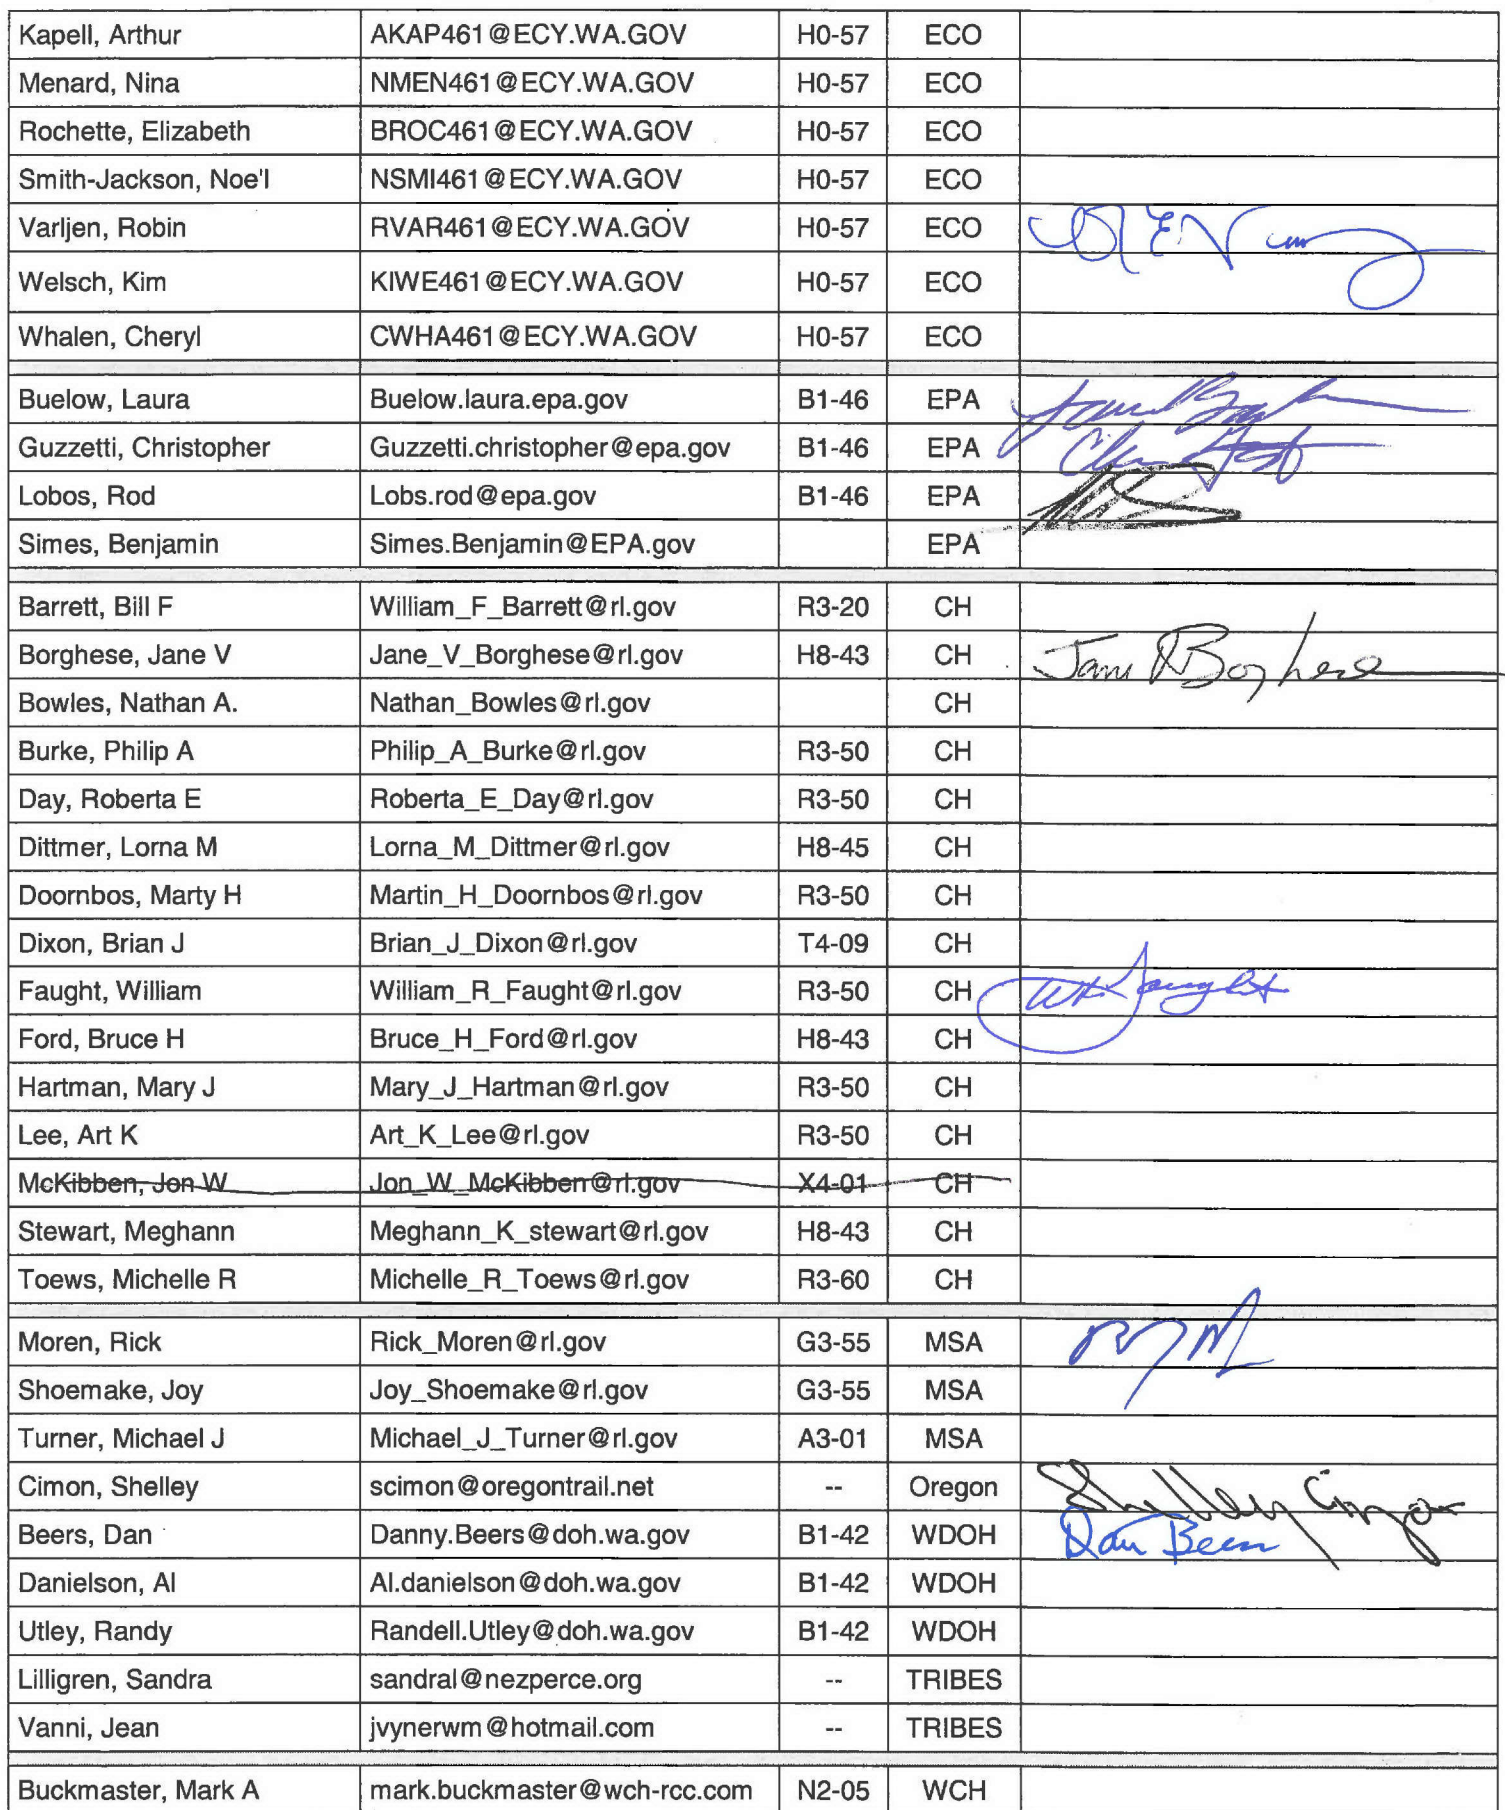 Kapell, Arthur AKAP461@ECY.WA.GOV H0-57 ECO
Menard, Nina NMEN461@ECY.WA.GOV H0-57 ECO
Rochette, Elizabeth BROC461@ECY.WA.GOV H0-57 ECO
Smith-Jackson, Noe'l NSMI461@ECY.WA.GOV H0-57 ECO
Varljen, Robin RVAR461@ECY.WA.GOV H0-57 ECO
Welsch, Kim KIWE461@ECY.WA.GOV H0-57 ECO
Whalen, Cheryl CWHA461@ECY.WA.GOV H0-57 ECO
Buelow, Laura Buelow.laura.epa.gov B1-46 EPA
Guzzetti, Christopher Guzzetti.christopher@epa.gov B1-46 EPA
Lobos, Rod Lobs.rod@epa.gov B1-46 EPA
Simes, Benjamin Simes.Benjamin@EPA.gov EPA
Barrett, Bill F William_F_Barrett@rl.gov R3-20 CH
Borghese, Jane V Jane_V_Borghese@rl.gov H8-43 CH Jane V Borghese
Bowles, Nathan A. Nathan_Bowles@rl.gov CH
Burke, Philip A Philip_A_Burke@rl.gov R3-50 CH
Day, Roberta E Roberta_E_Day@rl.gov R3-50 CH
Dittmer, Lorna M Lorna_M_Dittmer@rl.gov H8-45 CH
Doornbos, Marty H Martin_H_Doornbos@rl.gov R3-50 CH
Dixon, Brian J Brian_J_Dixon@rl.gov T4-09 CH
Faught, William William_R_Faught@rl.gov R3-50 CH WR Faught
Ford, Bruce H Bruce_H_Ford@rl.gov H8-43 CH
Hartman, Mary J Mary_J_Hartman@rl.gov R3-50 CH
Lee, Art K Art_K_Lee@rl.gov R3-50 CH
McKibben, Jon W Jon_W_McKibben@rl.gov X4-01 CH
Stewart, Meghann Meghann_K_stewart@rl.gov H8-43 CH
Toews, Michelle R Michelle_R_Toews@rl.gov R3-60 CH
Moren, Rick Rick_Moren@rl.gov G3-55 MSA
Shoemake, Joy Joy_Shoemake@rl.gov G3-55 MSA
Turner, Michael J Michael_J_Turner@rl.gov A3-01 MSA
Cimon, Shelley scimon@oregontrail.net -- Oregon Shelley Cimon
Beers, Dan Danny.Beers@doh.wa.gov B1-42 WDOH Dan Beers
Danielson, Al Al.danielson@doh.wa.gov B1-42 WDOH
Utley, Randy Randell.Utley@doh.wa.gov B1-42 WDOH
Lilligren, Sandra sandral@nezperce.org -- TRIBES
Vanni, Jean jvynerwm@hotmail.com -- TRIBES
Buckmaster, Mark A mark.buckmaster@wch-rcc.com N2-05 WCH